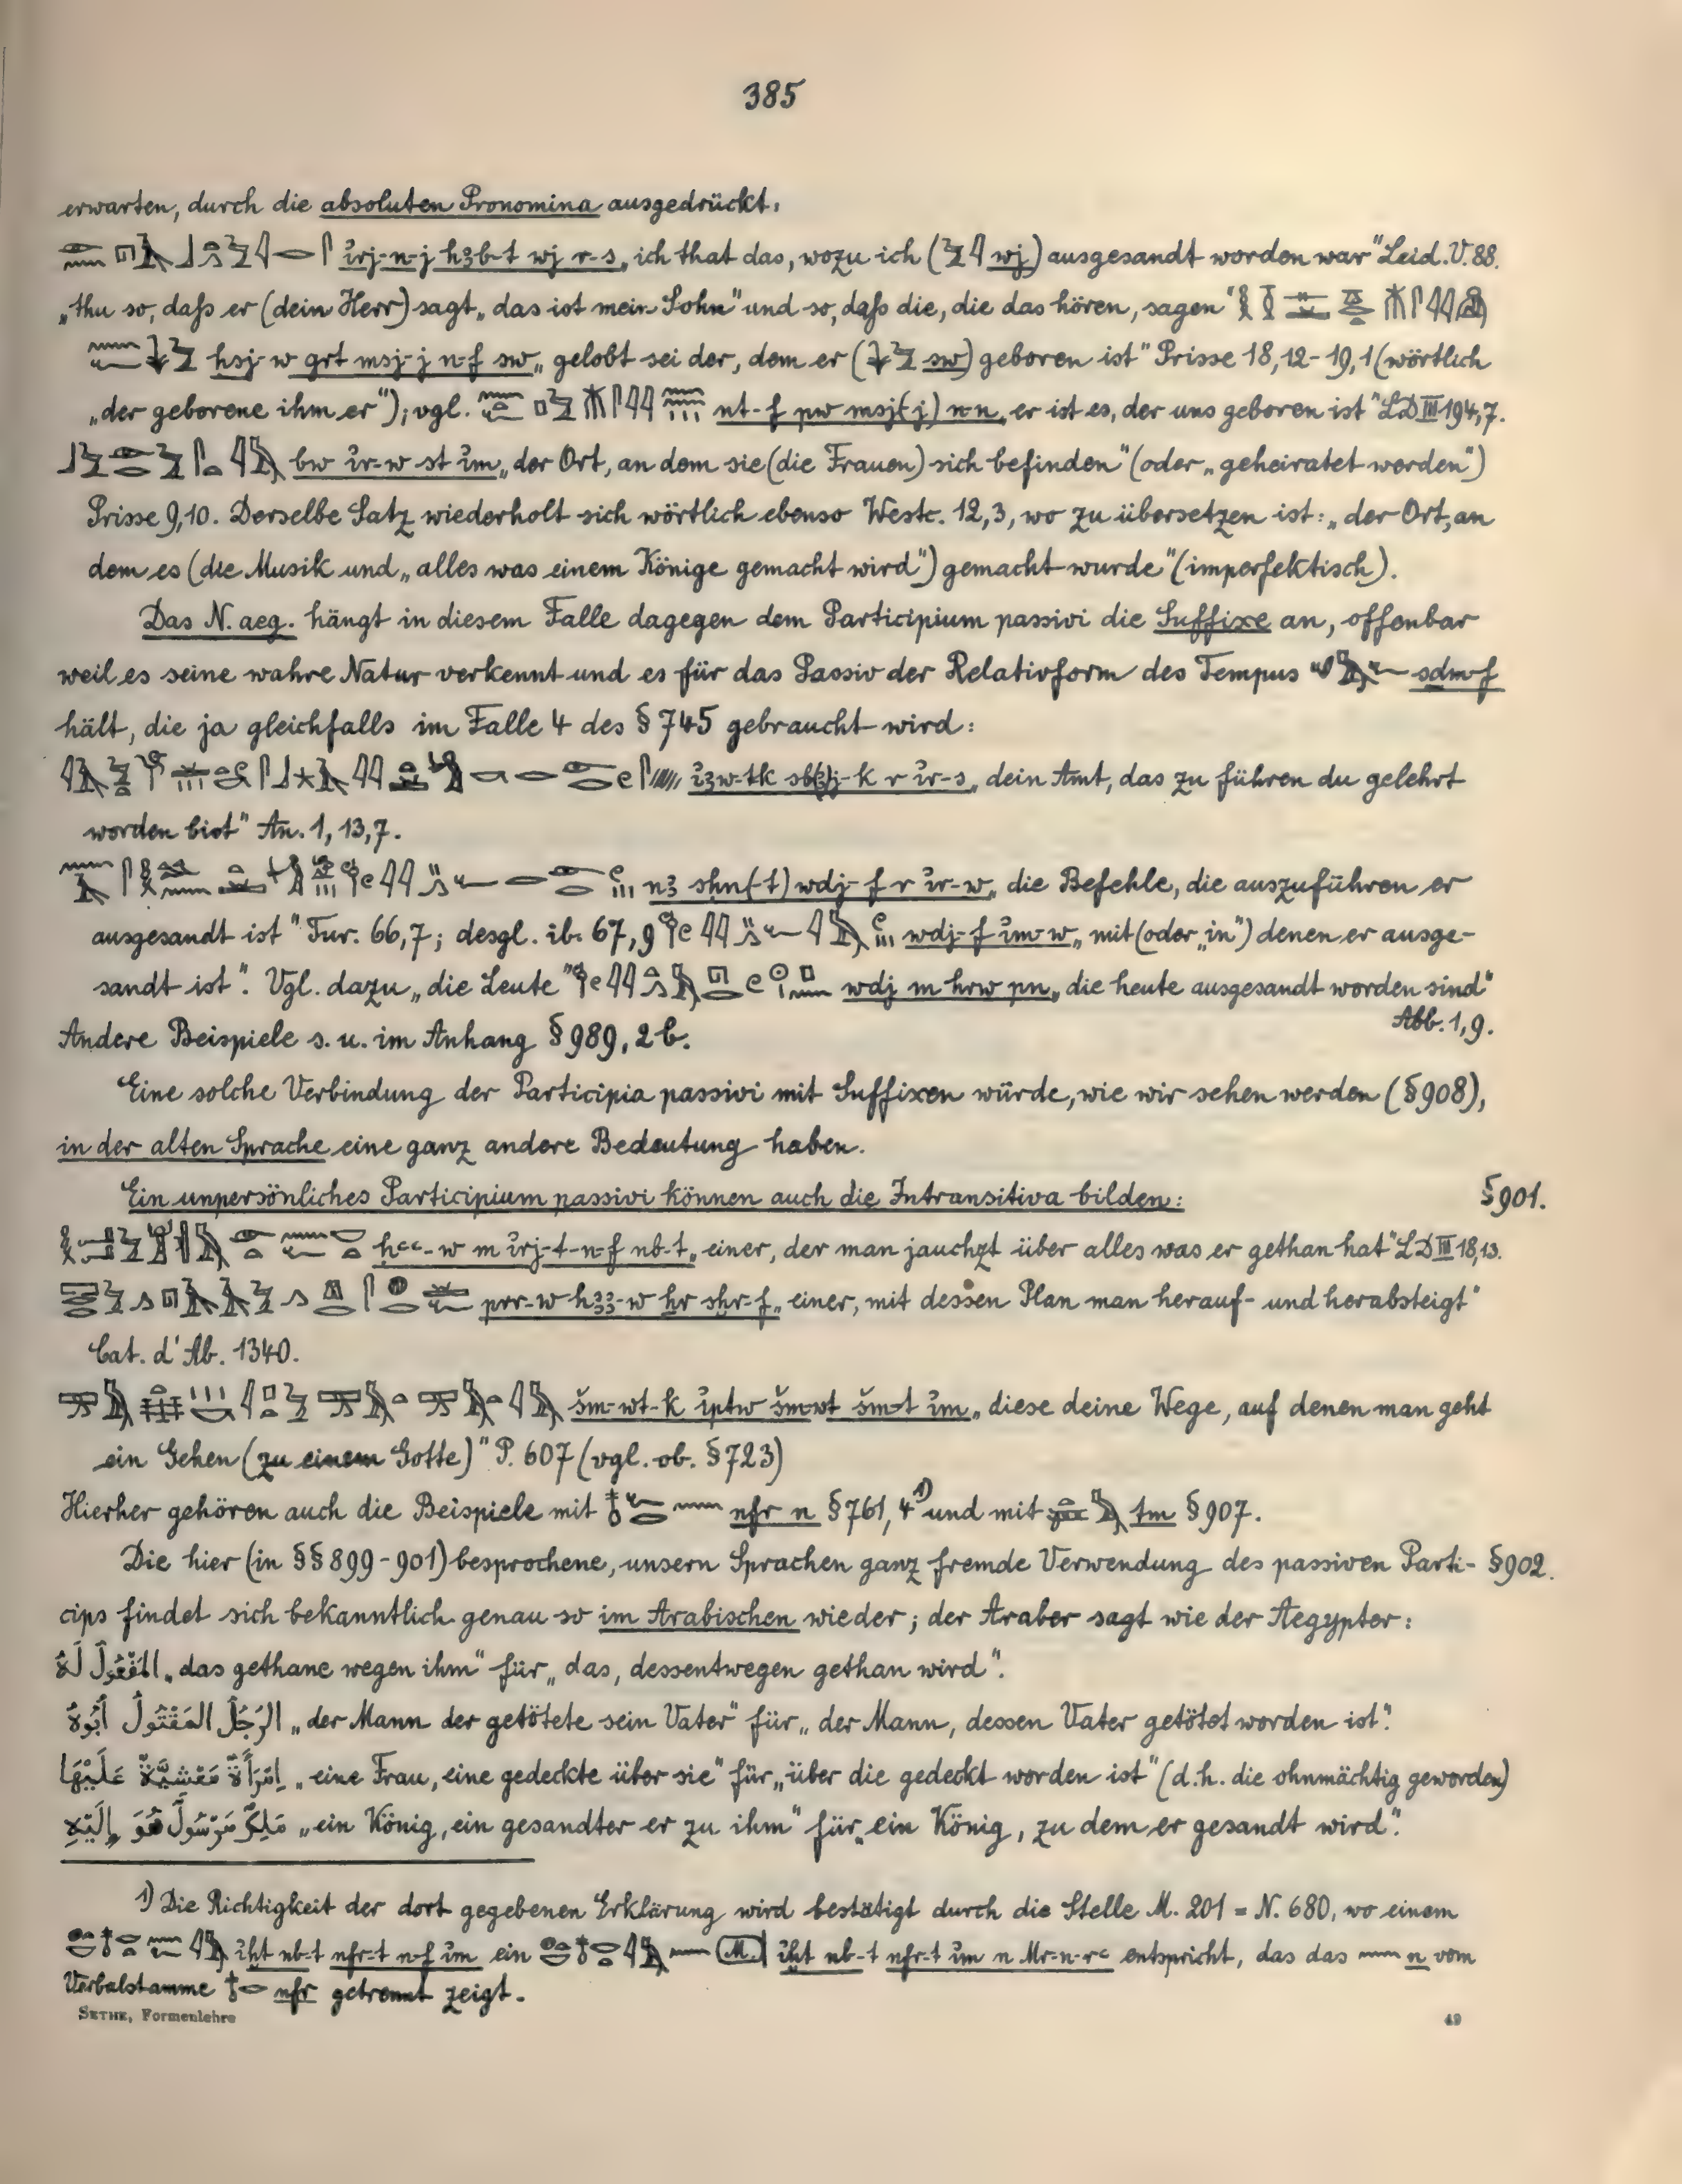 385
erwarten, durch die absoluten Pronomina ausgedrückt.
ỉrj-n-j hꜣb-t wj r-s „ich that das, wozu ich (wj) ausgesandt worden war“ Leid. V. 88.
„thu so, daſs er (dein Herr) sagt „das ist mein Sohn“ und so, daſs die, die das hören, sagen“
ḥsj-w grt msj-j n-f sw „gelobt sei der, dem er (sw) geboren ist“ Prisse 18,12-19,1 (wörtlich
„der geborene ihm er“); vgl. nt-f pw msj(j) n-n „er ist es, der uns geboren ist“ LD III 194,7.
bw ỉr-w st ỉm „der Ort, an dem sie (die Frauen) sich befinden“ (oder „geheiratet werden“)
Prisse 9,10. Derselbe Satz wiederholt sich wörtlich ebenso Westc. 12,3, wo zu übersetzen ist: „der Ort, an
dem es (die Musik und „alles was einem Könige gemacht wird“) gemacht wurde“ (imperfektisch).
Das N. aeg. hängt in diesem Falle dagegen dem Participium passivi die Suffixe an, offenbar
weil es seine wahre Natur verkennt und es für das Passiv der Relativform des Tempus sḏm-f
hält, die ja gleichfalls im Falle 4 des § 745 gebraucht wird:
ỉꜣw-tk sb(ꜣ)j-k r ỉr-s „dein Amt, das zu führen du gelehrt
worden bist“ An. 1, 13,7.
nꜣ sḥn(-t) wdj-f r ỉr-w „die Befehle, die auszuführen er
ausgesandt ist“ Tur. 66,7; desgl. ib. 67,9 wdj-f ỉm-w „mit (oder „in“) denen er ausge-
sandt ist“. Vgl. dazu „die Leute“ wdj m hrw pn „die heute ausgesandt worden sind“
Abb. 1,9.
Andere Beispiele s. u. im Anhang § 989, 2 b.
Eine solche Verbindung der Participia passivi mit Suffixen würde, wie wir sehen werden (§ 908),
in der alten Sprache eine ganz andere Bedeutung haben.
Ein unpersönliches Participium passivi können auch die Intransitiva bilden: § 901.
ḥꜥꜥ-w m ỉrj-t-n-f nb-t „einer, der man jauchzt über alles was er gethan hat“ LD III 18,13.
prr-w hꜣꜣ-w ḥr sḫr-f „einer, mit dessen Plan man herauf- und herabsteigt“
Cat. d'Ab. 1340.
šm-wt-k ỉptw šm-wt šm-t ỉm „diese deine Wege, auf denen man geht
ein Gehen (zu einem Gotte)“ P. 607 (vgl. ob. § 723)
Hierher gehören auch die Beispiele mit nfr n § 761, 4¹⁾ und mit tm § 907.
Die hier (in §§ 899-901) besprochene, unsern Sprachen ganz fremde Verwendung des passiven Parti- § 902.
cips findet sich bekanntlich genau so im Arabischen wieder; der Araber sagt wie der Aegypter:
المَفْعُولُ لَهُ „das gethane wegen ihm“ für „das, dessentwegen gethan wird“.
الرَجُلُ المَقْتُولُ أَبُوهُ „der Mann der getötete sein Vater“ für „der Mann, dessen Vater getötet worden ist“.
إِمْرَأَةٌ مَغْشِيَّةٌ عَلَيْهَا „eine Frau, eine gedeckte über sie“ für „über die gedeckt worden ist“ (d.h. die ohnmächtig geworden)
مَلِكٌ مَرْسُولٌ هُوَ إِلَيْهِ „ein König, ein gesandter er zu ihm“ für „ein König, zu dem er gesandt wird“.
1) Die Richtigkeit der dort gegebenen Erklärung wird bestätigt durch die Stelle M. 201 = N. 680, wo einem
ỉḫt nb-t nfr-t n-f ỉm ein ỉḫt nb-t nfr-t ỉm n Mr-n-rꜥ entspricht, das das n vom
Verbalstamme nfr getrennt zeigt.
SETHE, Formenlehre 49